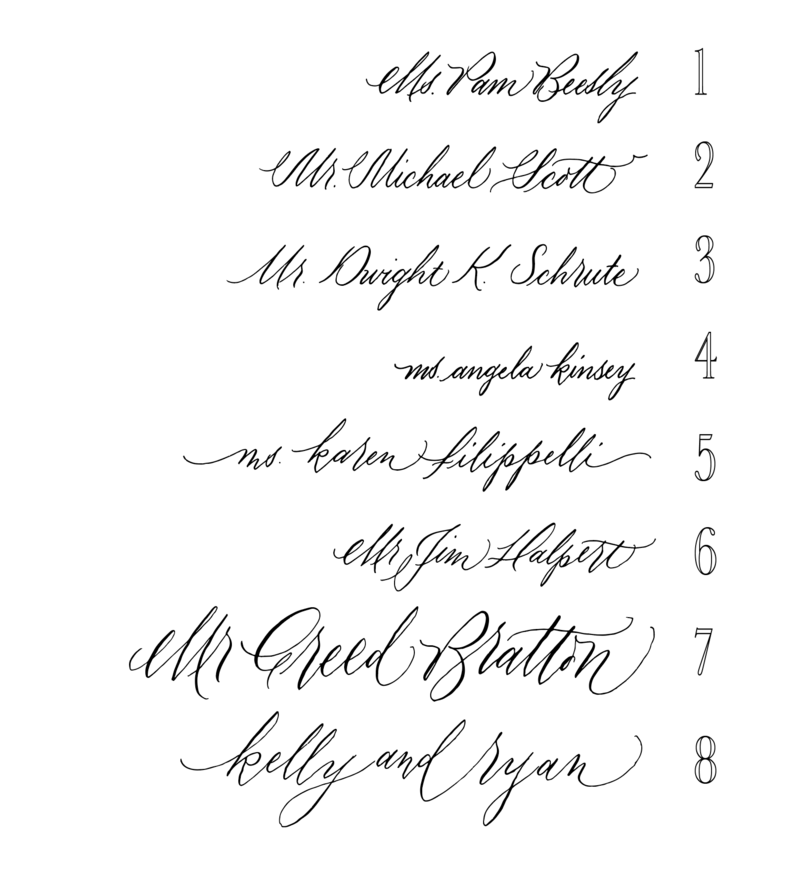 Ms. Pam Beesly 1
Mr. Michael Scott 2
Mr. Dwight K. Schrute 3
ms. angela kinsey 4
ms. karen filippelli 5
Mr. Jim Halpert 6
Mr Creed Bratton 7
kelly and ryan 8